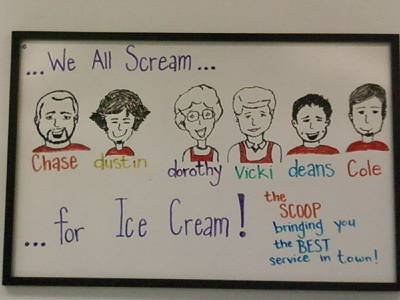 ...We All Scream...
Chase dustin dorothy Vicki deans Cole
...for Ice Cream!
the
SCOOP
bringing you
the BEST
service in town!